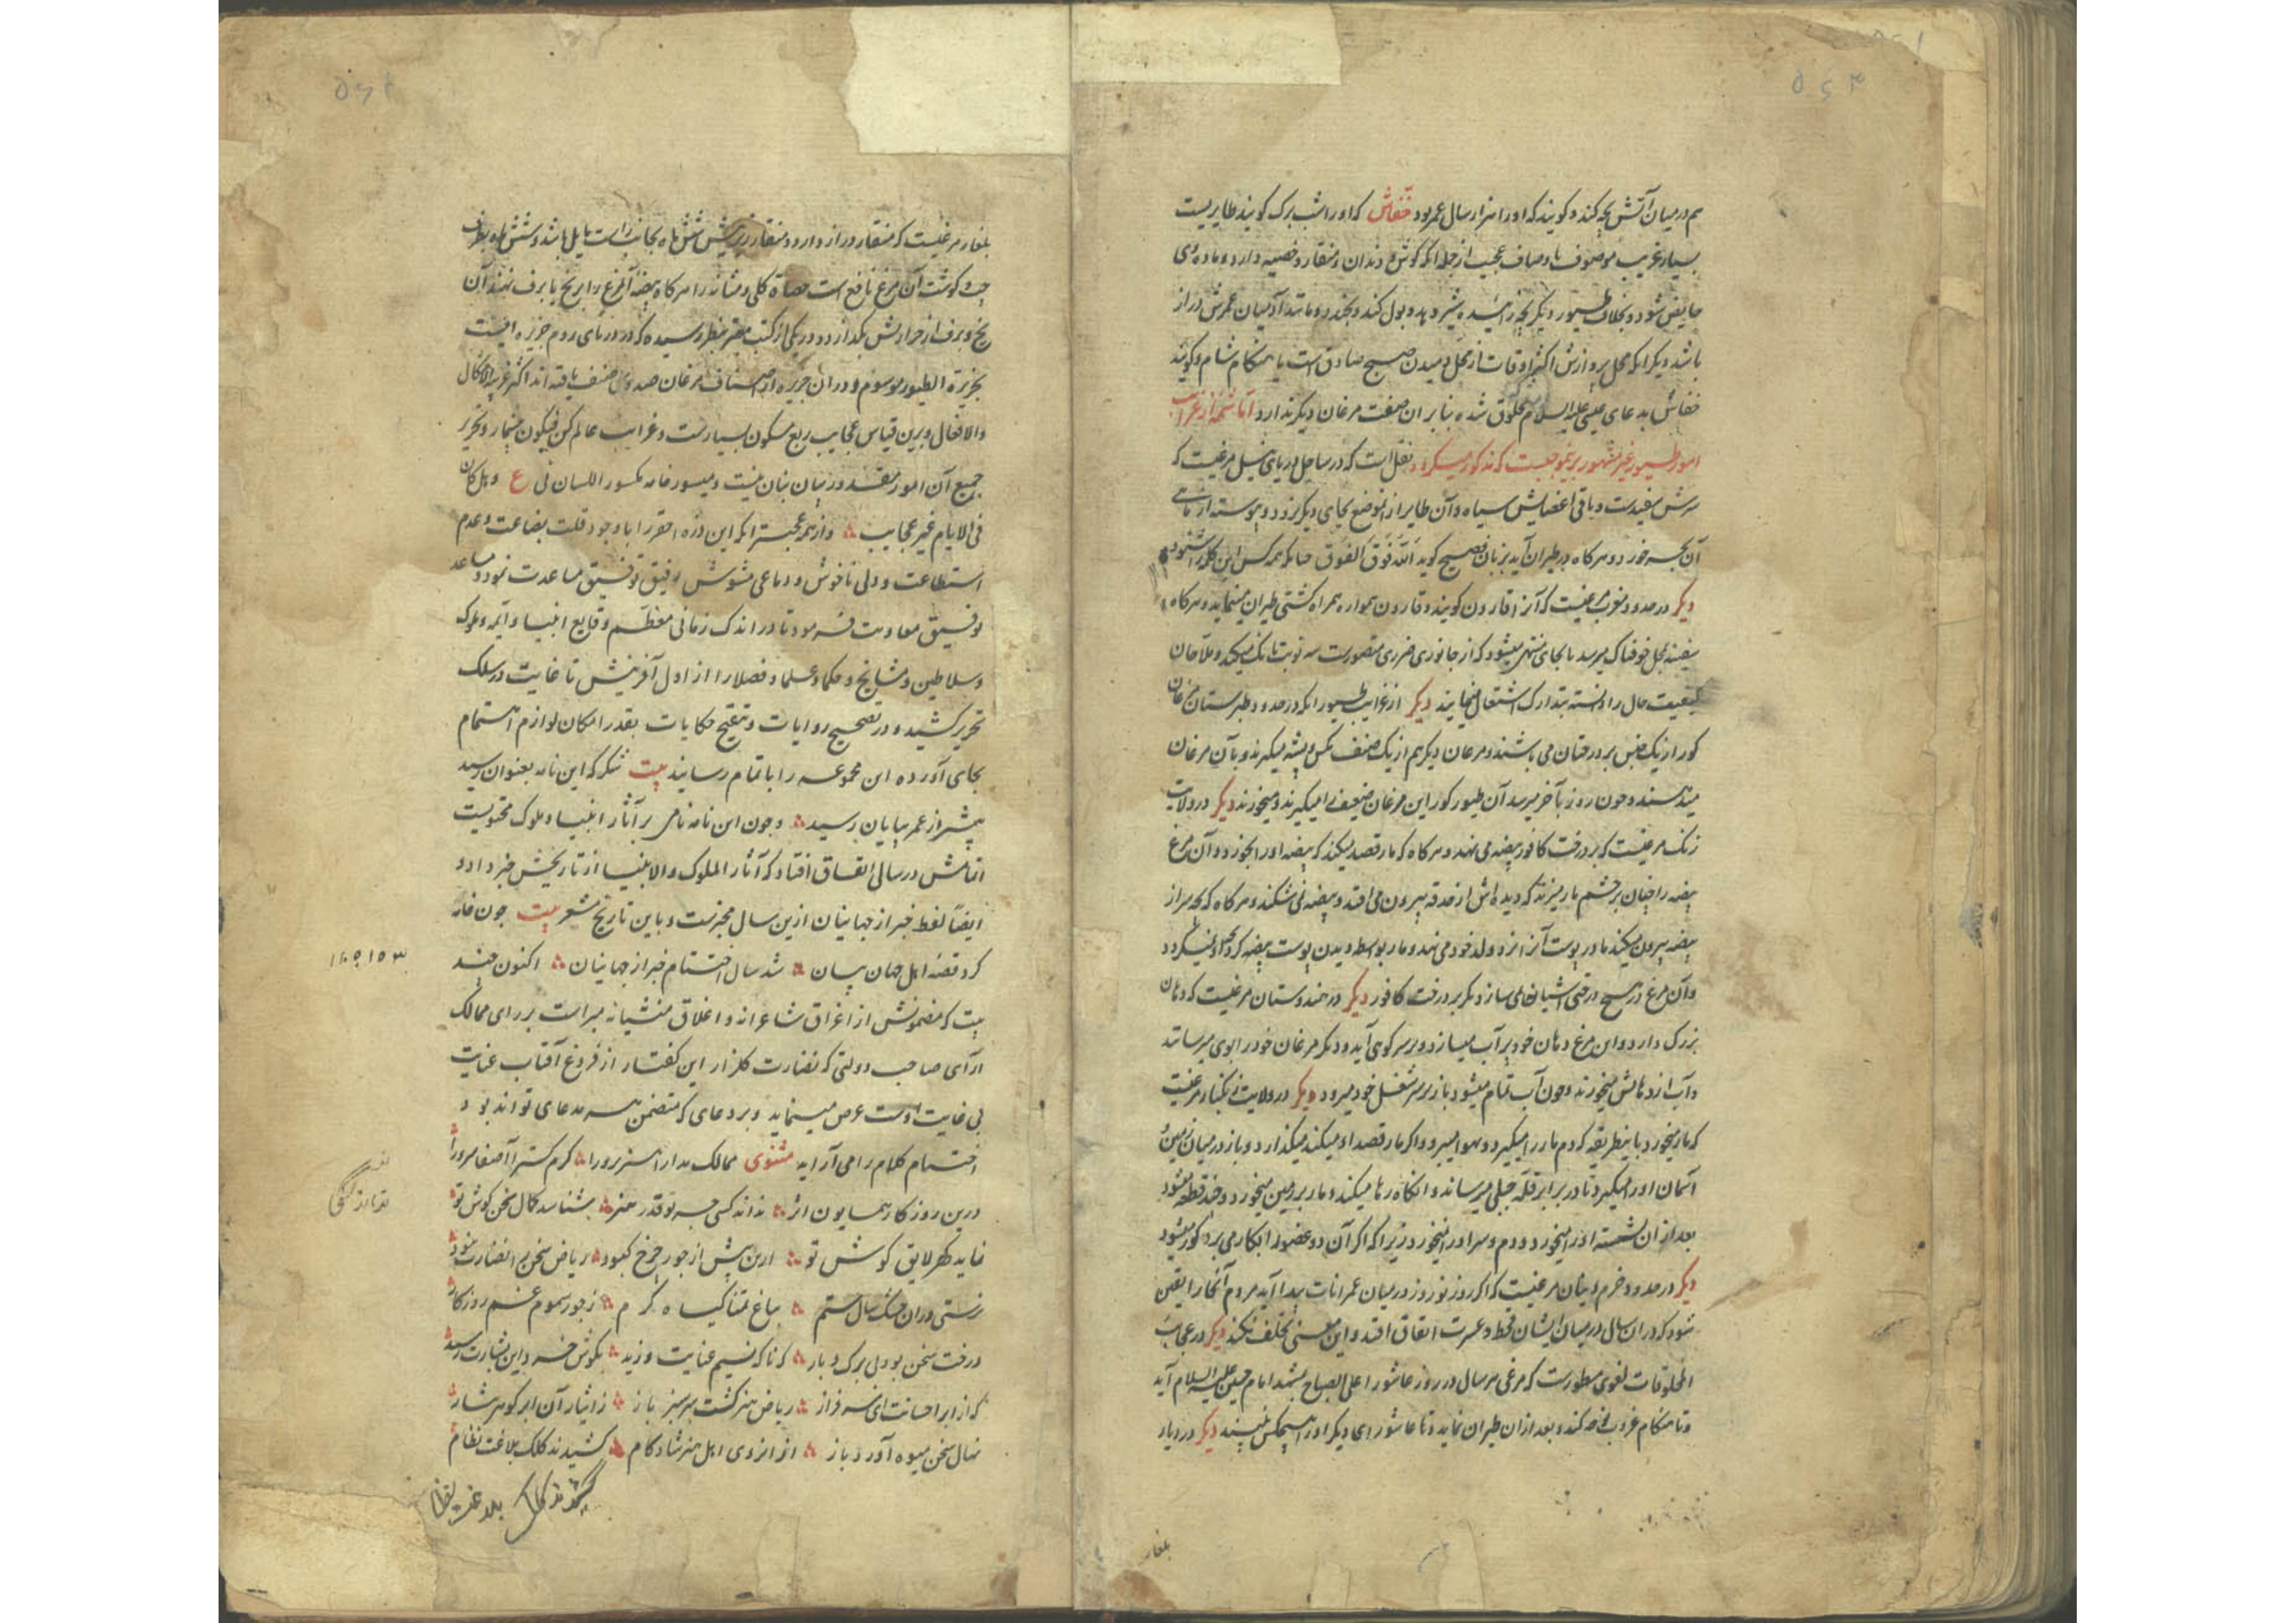 هم درمیان آتش بچه کند و کویند که او را هزار سال عمر بود خفاش که او را شب پرک کویند طایریست
بسیار غریب موصوف باوصاف عجیب از جمله انکه کوش و دندان و منقار و خصیه دارد و ماده وی
حایض شود و بخلاف طیور دیکر بچه زائیده شیر دهد و بول کند و بخندد و مانند آدمیان عمرش دراز
باشد دیکر انکه محل پروازش اکثر اوقات از محل دمیدن صبح صادق است یا هنکام شام و کویند
خفاش بدعای عیسی علیه السلام مخلوق شده بنابر ان صفت مرغان دیکر ندارد اما شمه از غرایب
امور طیور غیر مشهور برین موجبست که مذکور میکردد نقل است که در ساحل دریای نیل مرغیست که
سرش سفیدست و باقی اعضایش سیاه و آن طایر از آنموضع بجای دیکر نرود و پیوسته از ماهی
آن بحر خورد و هرکاه در طیران آید بزبان فصیح کوید الله فوق الفوق چنانکه همه کس این کلمه را شنود
دیکر در حدود مغرب مرغیست که آنرا قارون کویند و قارون همواره همراه کشتی طیران مینماید و هرکاه
سفینه بمحل خوفناک میرسد یا بجای منتهی میشود که از جانوری ضرری متصورست سه نوبت بانک میکند و ملاحان
کیفیت حال را دانسته بتدارک اشتغال مینمایند دیکر از غرایب طیور انکه در حدود طبرستان مرغان
کور از یک جنس بر درختان می باشند و مرغان دیکر هم از یک صنف مکس و پشه میکیرند و بآن مرغان
میدهند و چون روز بآخر میرسد آن طیور کور این مرغان ضعیف را میکیرند و میخورند دیکر در ولایت
زنک مرغیست که بر درخت کافور بیضه می نهد و هرکاه که مار قصد میکند که بیضه او را بخورد آن مرغ
بیضه را چنان بر چشم مار میزند که دیده اش از حدقه بیرون می افتد و بیضه نمی شکند و هرکاه که بچه سر از
بیضه بیرون میکند مادر پوست آنرا نزد ولد خود می نهد و مار بواسطه دیدن پوست بیضه کرد بچه او نمیکردد
و آن مرغ در هیچ درختی اشیانه نمی سازد مکر بر درخت کافور دیکر در هندوستان مرغیست که دهان
بزرک دارد و این مرغ دهان خود پر آب میسازد و بر سر کوهی آید و دیکر مرغان خود را بوی میرسانند
و آب از دهانش میخورند و چون آب تمام میشود باز بر سر شغل خود میرود دیکر در ولایت زنکبار مرغیست
که مار میخورد باینطریقه که دم مار را میکیرد و بهوا میبرد و اکر مار قصد او میکند میکذارد و باز در میان زمین و
آسمان او را میکیرد تا در برابر قله جبلی میرساند و انکاه رها میکند و مار بر زمین میخورد و چند قطعه میشود
بعد از ان نشسته او را میخورد و دم و سر او را نمیخورد زیرا که اکر آن دو عضو را بکار می برد کور میشود
دیکر در حدود خرم دینان مرغیست که اکر روز نوروز در میان عمرانات پیدا آید مردم آنجا را یقین
شود که در ان سال در میان ایشان قحط و عسرت اتفاق افتد و این معنی تخلف نکند دیکر در عجایب
المخلوقات لغوی مسطورست که مرغی هر سال در روز عاشورا علی الصباح بمشهد امام حسین علیه السلام آید
و تا هنکام غروب نوحه کند و بعد از ان طیران نماید و تا عاشورای دیکر او را هیچکس نبیند دیکر در دیار
بلغار
بلغار مرغیست که منقار دراز دارد و منقار زیرینش شش ماه بجانب راست مایل باشد و شش ماه بطرف
چپ و کوشت آن مرغ نافع است حصاة کلی و مثانه را و هرکاه بیضه آنمرغ را بر یخ یا برف نهند آن
یخ و برف از حرارتش بکدازد و در یکی از کتب معتبر بنظر رسیده که در دریای روم جزیره ایست
بجزیرة الطیور موسوم و در ان جزیره از اصناف مرغان صد و سی صنف یافته اند اکثر غریب الاشکال
والافعال و برین قیاس عجایب ربع مسکون بسیارست و غرایب عالم کن فیکون بیشمار و تحریر
جمیع آن امور مقدور بیان بنان نیست و میسور خامه مکسور اللسان نی ع وهل کان
فی الایام غیر عجایب و از همه عجبتر انکه این ذره احقر را با وجود قلت بضاعت و عدم
استطاعت و دلی ناخوش و دماغی مشوش رفیق توفیق مساعدت نمود و مساعد
توفیق معاونت فرمود تا در اندک زمانی معظم وقایع انبیا و ائمه و ملوک
و سلاطین و مشایخ و حکما و علما و فضلا را از اول آفرینش تا غایت در سلک
تحریر کشید و در تصحیح روایات و تنقیح حکایات بقدر امکان لوازم اهتمام
بجای آورده این مجموعه را باتمام رسانید بیت شکر که این نامه بعنوان رسید
پیشتر از عمر بپایان رسید و چون این نامه نامی بر آثار انبیا و ملوک محتویست
اتمامش در سالی اتفاق افتاد که آثار الملوک والانبیا از تاریخش خبر داد و
ایضاً لفظ خبر از جهانیان ازین سال مخبرست و باین تاریخ مشعر بیت چون خامه
کرد قصه اهل جهان بیان شد سال اختتام خبر از جهانیان اکنون چند
بیت که مضمونش از اغراق شاعرانه و اغلاق منشیانه مبراست بر رای ممالک
آرای صاحب دولتی که نضارت کلزار این کفتار از فروغ آفتاب عنایت
بی غایت اوست عرض مینماید و بر دعای که متضمن همه مدعای تواند بود
اختتام کلام را می آراید مثنوی ممالک مدارا هنر پرورا کرم کسترا آصفا سرورا
درین روزکار همایون اثر نداند کسی جز تو قدر هنر شناسد کمال سخن کوش تو
نماید کهر لایق کوش تو ازین پیش از جور چرخ کبود ریاض سخن بی نضارت نمود
ز سستی دران خشک سال ستم بباغ تمنا کیاه کرم ز جور سموم غم روزکار
درخت سخن بود بی برک و بار که ناکه نسیم عنایت وزید بکوش خرد این بشارت رسید
که از ابر احسانت ای سرفراز ریاض هنر کشت سرسبز باز ز ایثار آن ابر کوهر نثار
نهال سخن میوه آورد باز از انروی اهل هنر شادکام کشیدند کلک بلاغت نظام
کشیدند کلک بلاغت نظام